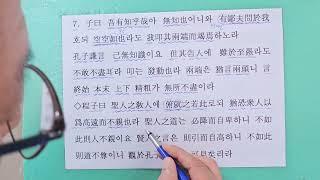 7. 子曰 吾有知乎哉아 無知也이니와 有鄙夫問於我
호되 空空如也라도 我叩其兩端而竭焉하노라
孔子謙言 己無知識이요 但其告人에 雖於至愚라도
不敢不盡耳라 叩는 發動也라 兩端은 猶言兩頭니 言
終始 本末 上下 精粗가 無所不盡이라
◇程子曰 聖人之敎人에 俯就之若此로되 猶恐衆人以
爲高遠而不親也라 聖人之道는 必降而自卑하니 不如
此則人不親이요 賢人之言은 則引而自高하니 不如此
則道不尊이니 觀於孔子
可見矣리라